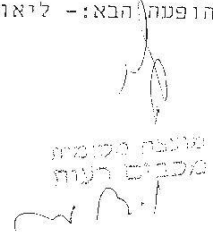 הופעה הבא:- ליאו
מועצה מקומית
מכבים רעות